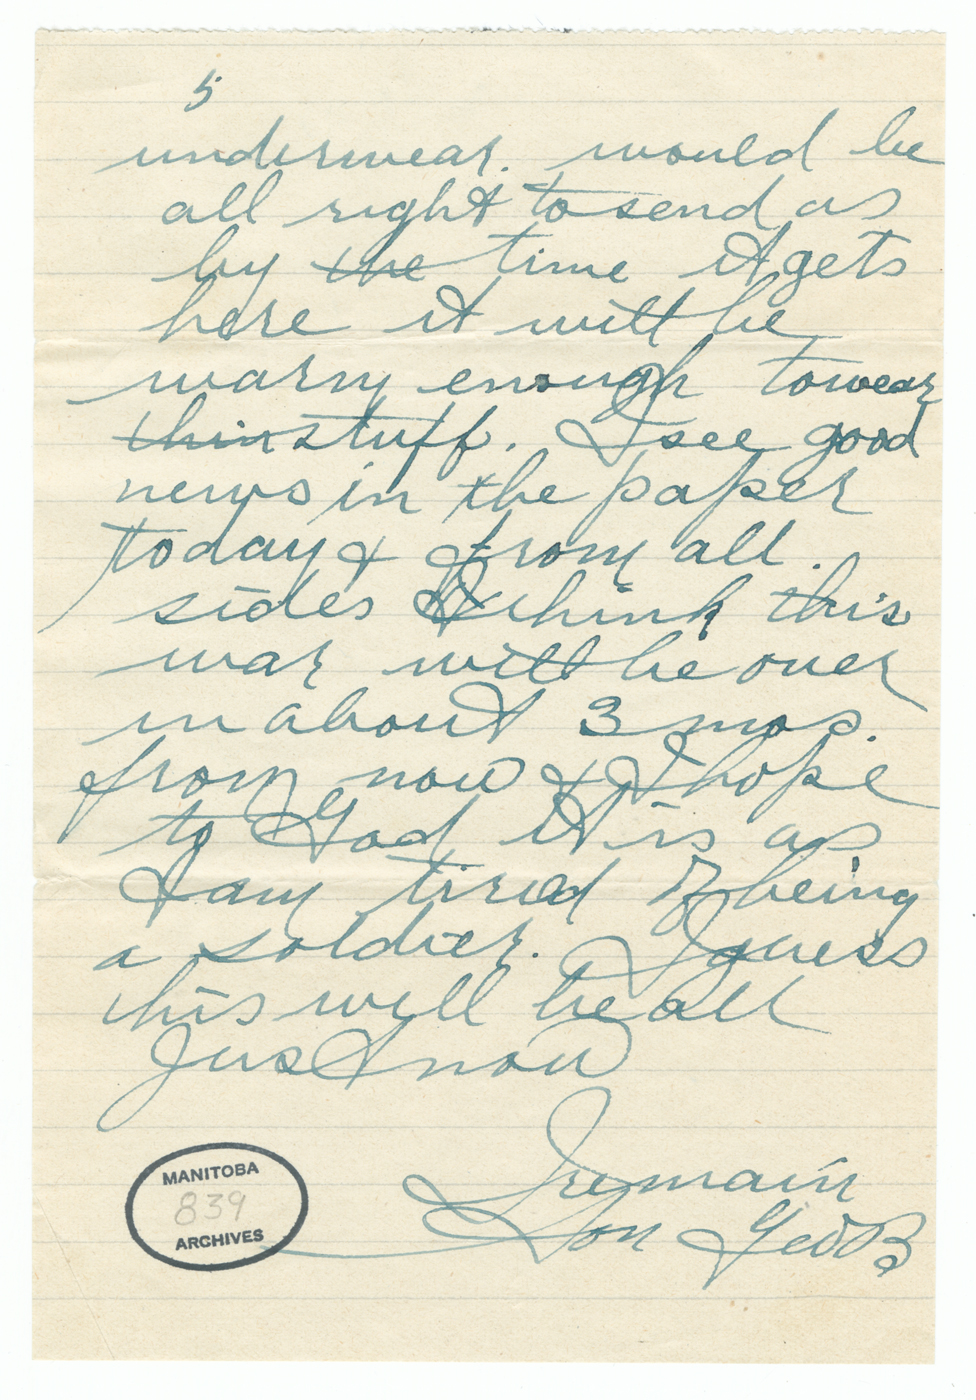 5
underwear. would be
all right to send as
by the time it gets
here it will be
warm enough to wear
thin stuff. I see good
news in the paper
today & from all.
sides I think this
war will be over
in about 3 mos.
from now & I hope
to God it is as
I am tired of being
a soldier. I guess
this will be all
Just now
I remain
Son Geo B
MANITOBA
839
ARCHIVES